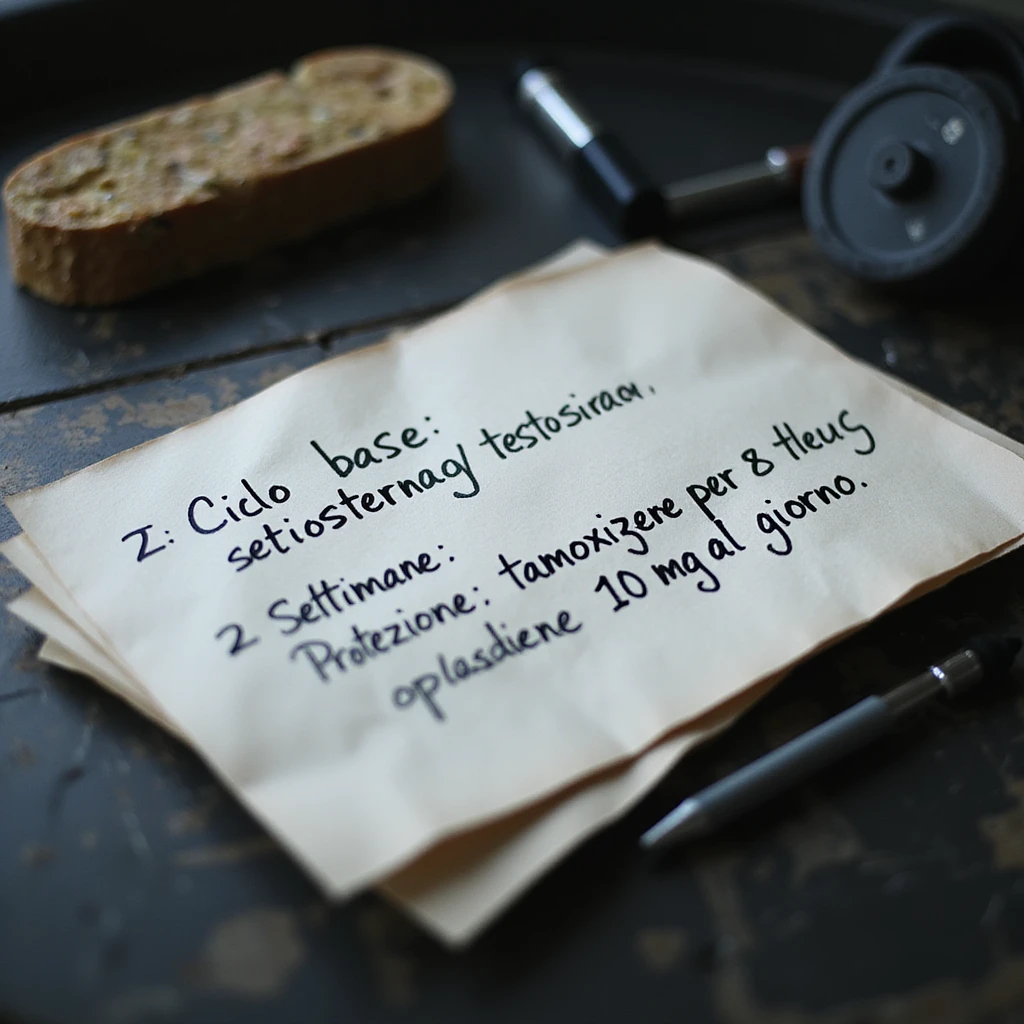 I: Ciclo base:
setiosternag testosiraa.
2 Settimane:
Protezione: tamoxizere per 8
oplasdiene 10 mg al giorno.